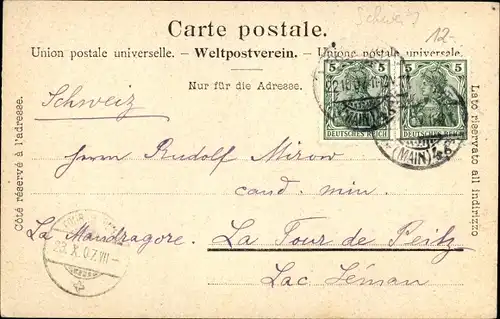 Schweiz
12-
Carte postale.
Union postale universelle. – Weltpostverein. – Unione postale universale.
Nur für die Adresse.
5 5 5 5
DEUTSCHES REICH DEUTSCHES REICH
(MAIN) (MAIN)
Côté réservé à l'adresse.
Lato riservato all indirizzo
Schweiz
Herrn Rudolf Mirow
cand. min.
La Mandragore. La Tour de Peilz
Lac Léman
23.X.07.VII–